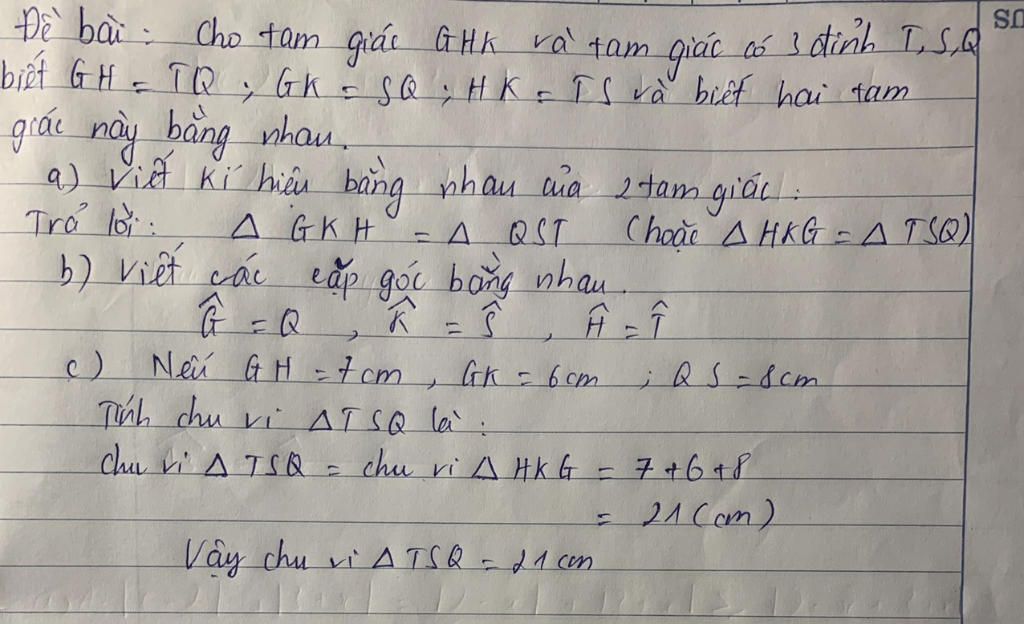 Đề bài: Cho tam giác GHK và tam giác có 3 đỉnh T,S,Q
biết GH = TQ; GK = SQ; HK = TS và biết hai tam
giác này bằng nhau.
a) Viết kí hiệu bằng nhau của 2 tam giác:
Trả lời: Δ GKH = Δ QST (hoặc Δ HKG = Δ TSQ)
b) Viết các cặp góc bằng nhau.
Ĝ = Q, K̂ = Ŝ, Ĥ = T̂
c) Nếu GH = 7cm, GK = 6cm; QS = 8cm
Tính chu vi Δ TSQ là:
Chu vi Δ TSQ = chu vi Δ HKG = 7+6+8
= 21 (cm)
Vậy chu vi Δ TSQ = 21 cm